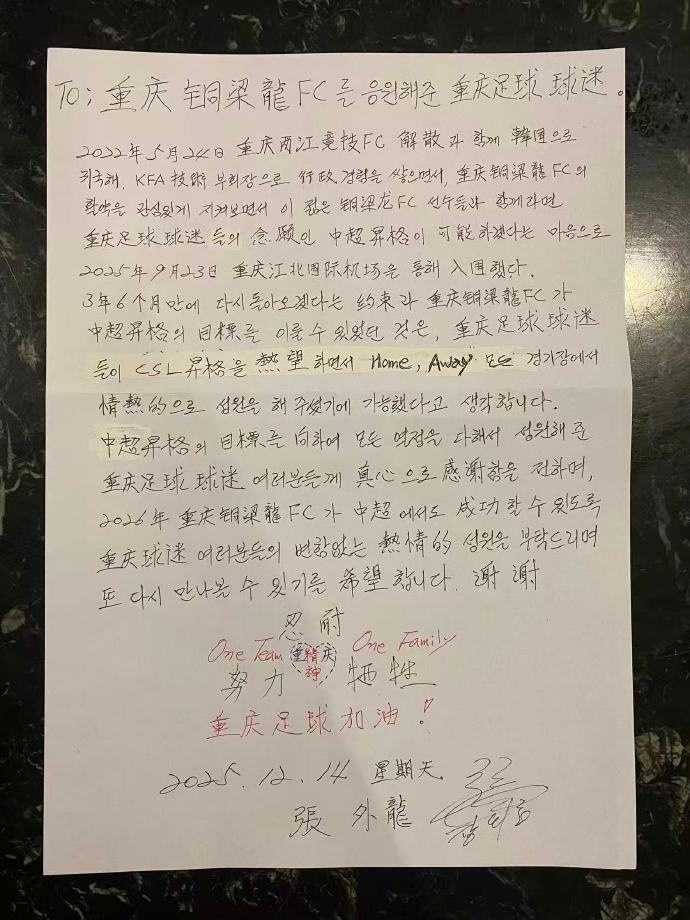 To; 重庆 铜梁龍 FC를 응원해준 重庆足球 球迷。
2022年 5月24日 重庆两江竞技FC 解散과 함께 韓国으로
귀국해, KFA 技術 부회장으로 行政 경험을 쌓으면서, 重庆铜梁龍 FC의
활약을 관심있게 지켜보면서 이 젊은 铜梁龙FC 선수들과 함께라면
重庆足球 球迷들의 念願인 中超昇格이 可能하겠다는 마음으로
2025年 9月23日 重庆江北国际机场을 통해 入国했다.
3年 6个月만에 다시돌아오겠다는 约束과 重庆铜梁龍FC가
中超昇格의 目標를 이룰 수 있었던 것은, 重庆足球 球迷
들이 CSL 昇格을 熱望하면서 Home, Away 모든 경기장에서
情熱的으로 성원을 해 주셨기에 가능했다고 생각합니다.
中超昇格의 目標를 向하여 모든 역점을 다해서 성원해 준
重庆足球 球迷 여러분들게 真心으로 感谢함을 전하며,
2026年 重庆铜梁龍 FC가 中超에서도 成功할 수 있도록
重庆球迷 여러분들의 변함없는 熱情的 성원을 부탁드리며
또 다시 만나볼 수 있기를 希望합니다. 谢谢
忍耐
One Team 重精庆神 One Family
努力 牺牲
重庆足球加油!
2025.12.14 星期天.
張 外龍
장외룡